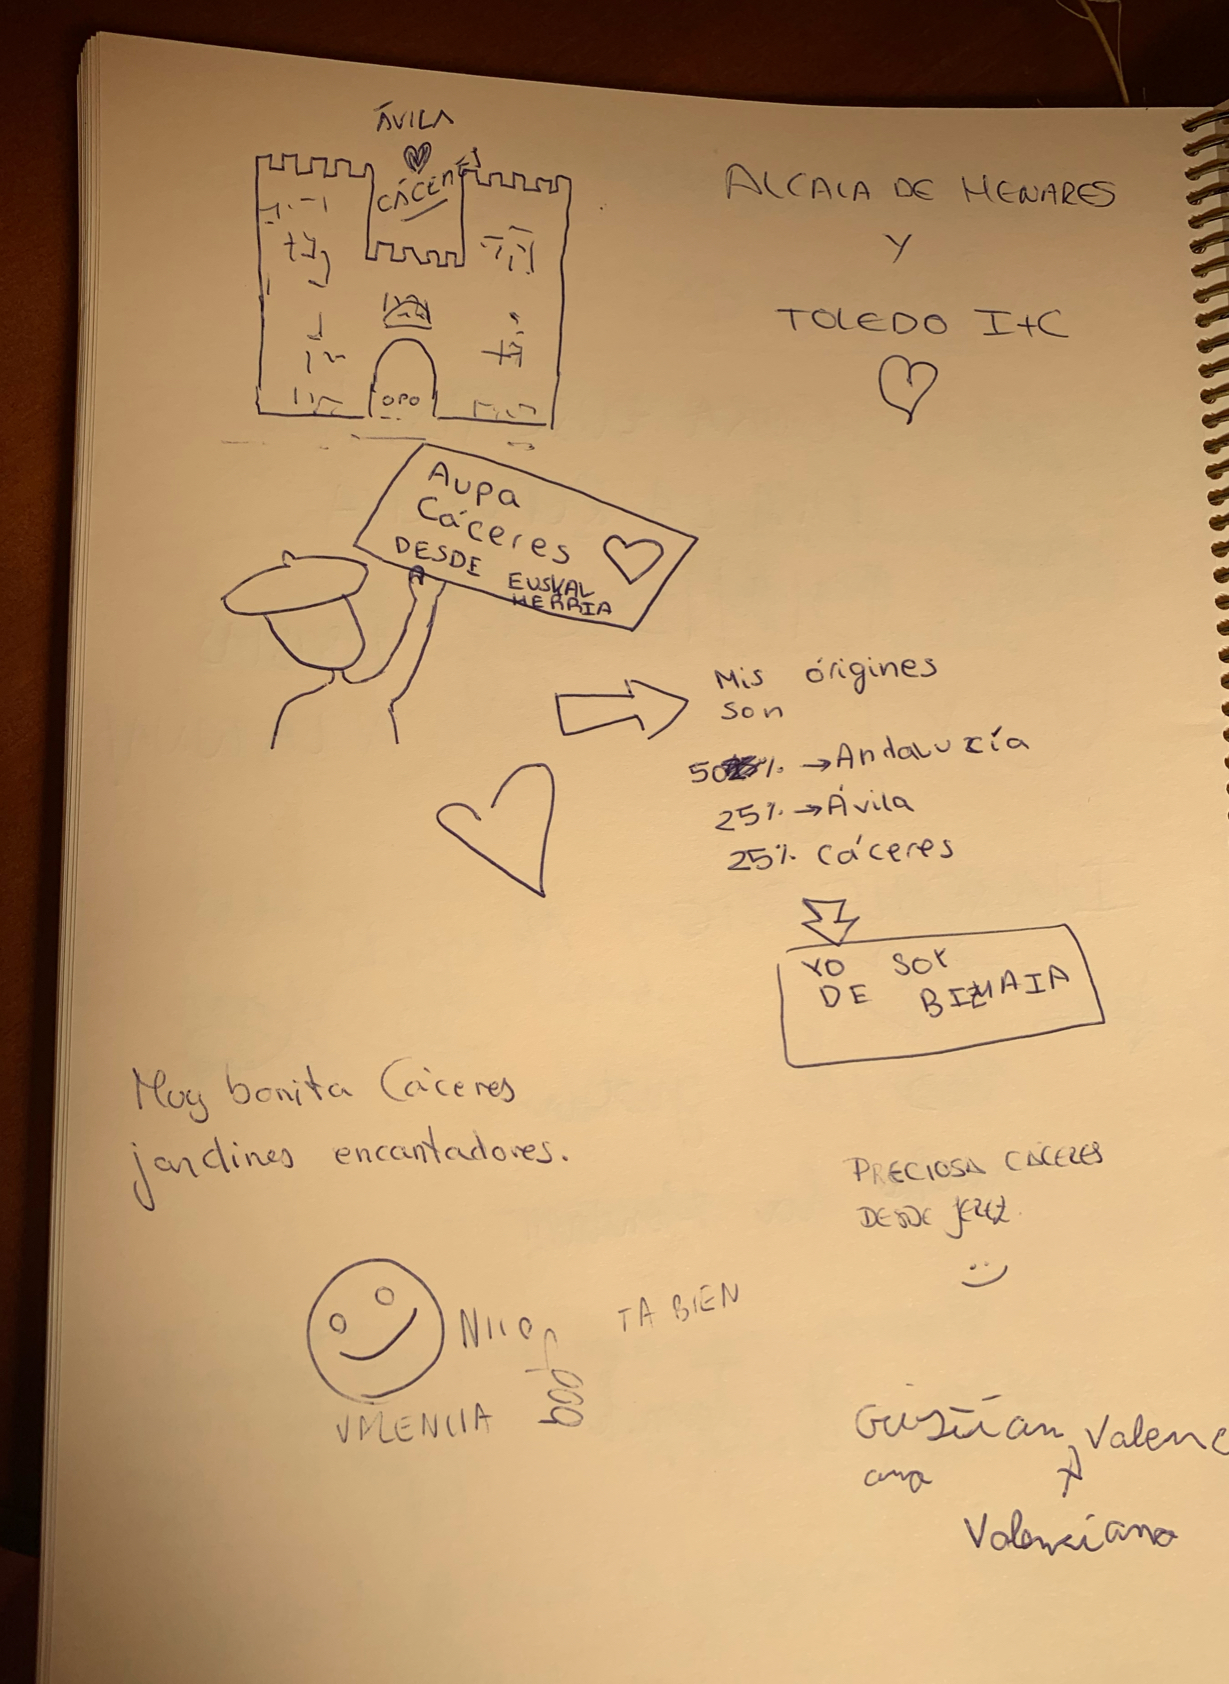 ÁVILA
CÁCERES
OPO
ALCALA DE HENARES
Y
TOLEDO I+C
Aupa
Cáceres
DESDE EUSKAL
HERRIA
Mis órigines
son
50% →Andalucía
25% →Ávila
25% Cáceres
YO SOY
DE BIZKAIA
Muy bonita Cáceres
jardines encantadores.
PRECIOSA CÁCERES
DESDE JEREZ.
NICO
TA BIEN
VALENCIA
Cristian Valenc
ana
Y
Valenciano